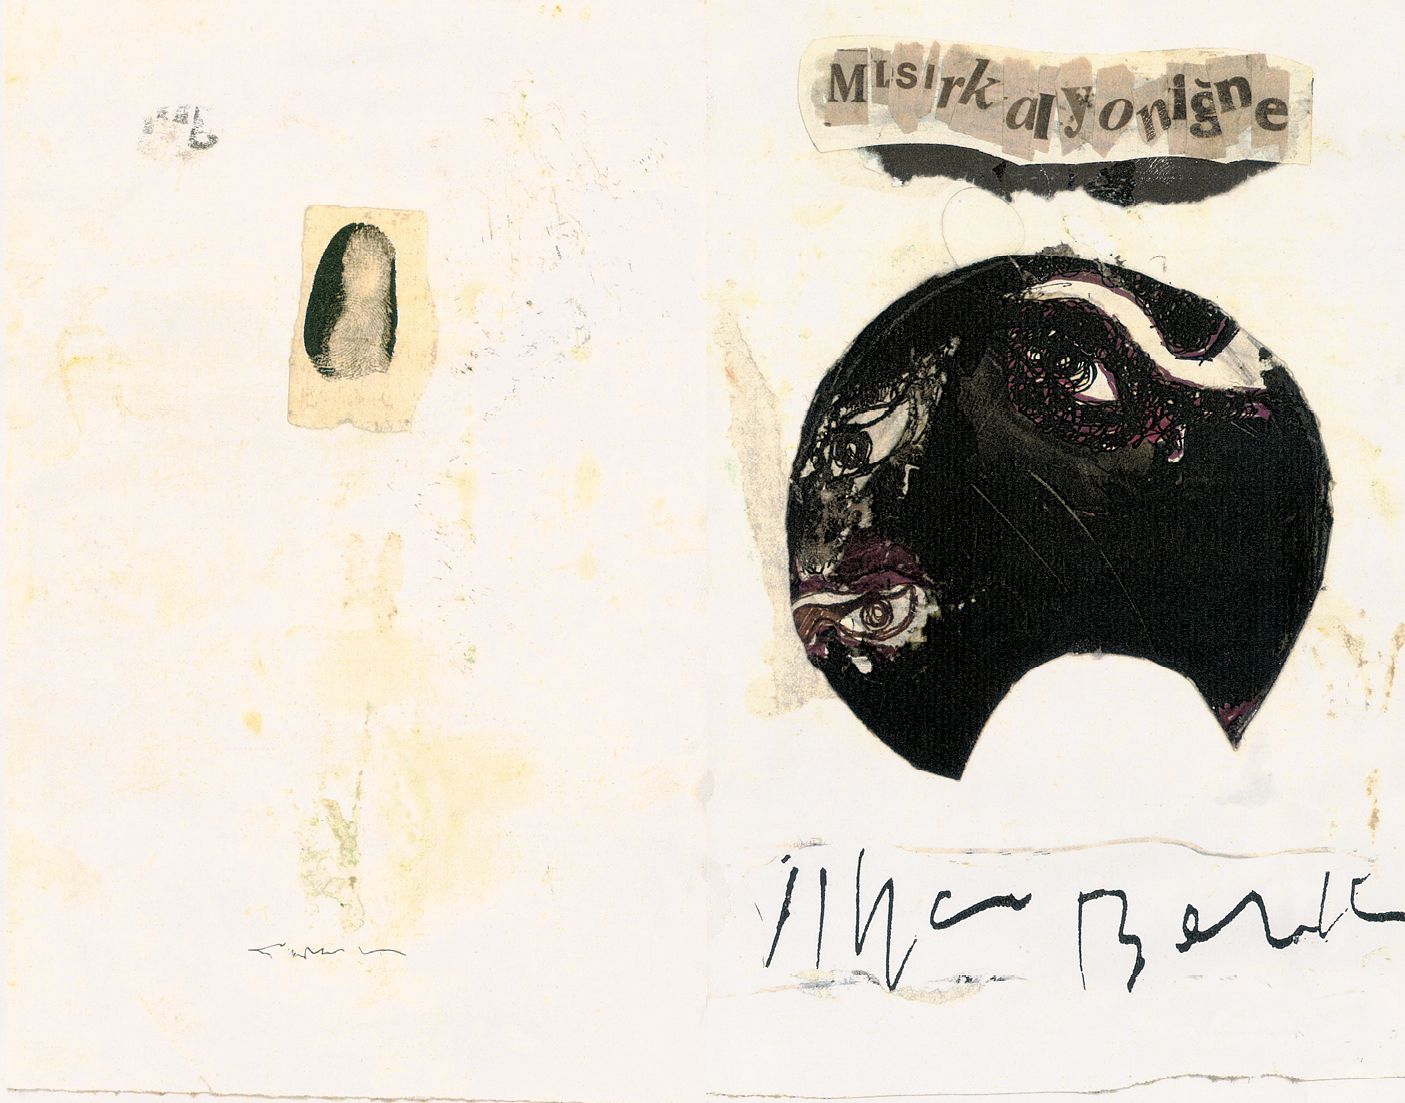 Mısırkalyoniğne
İlhan Berk